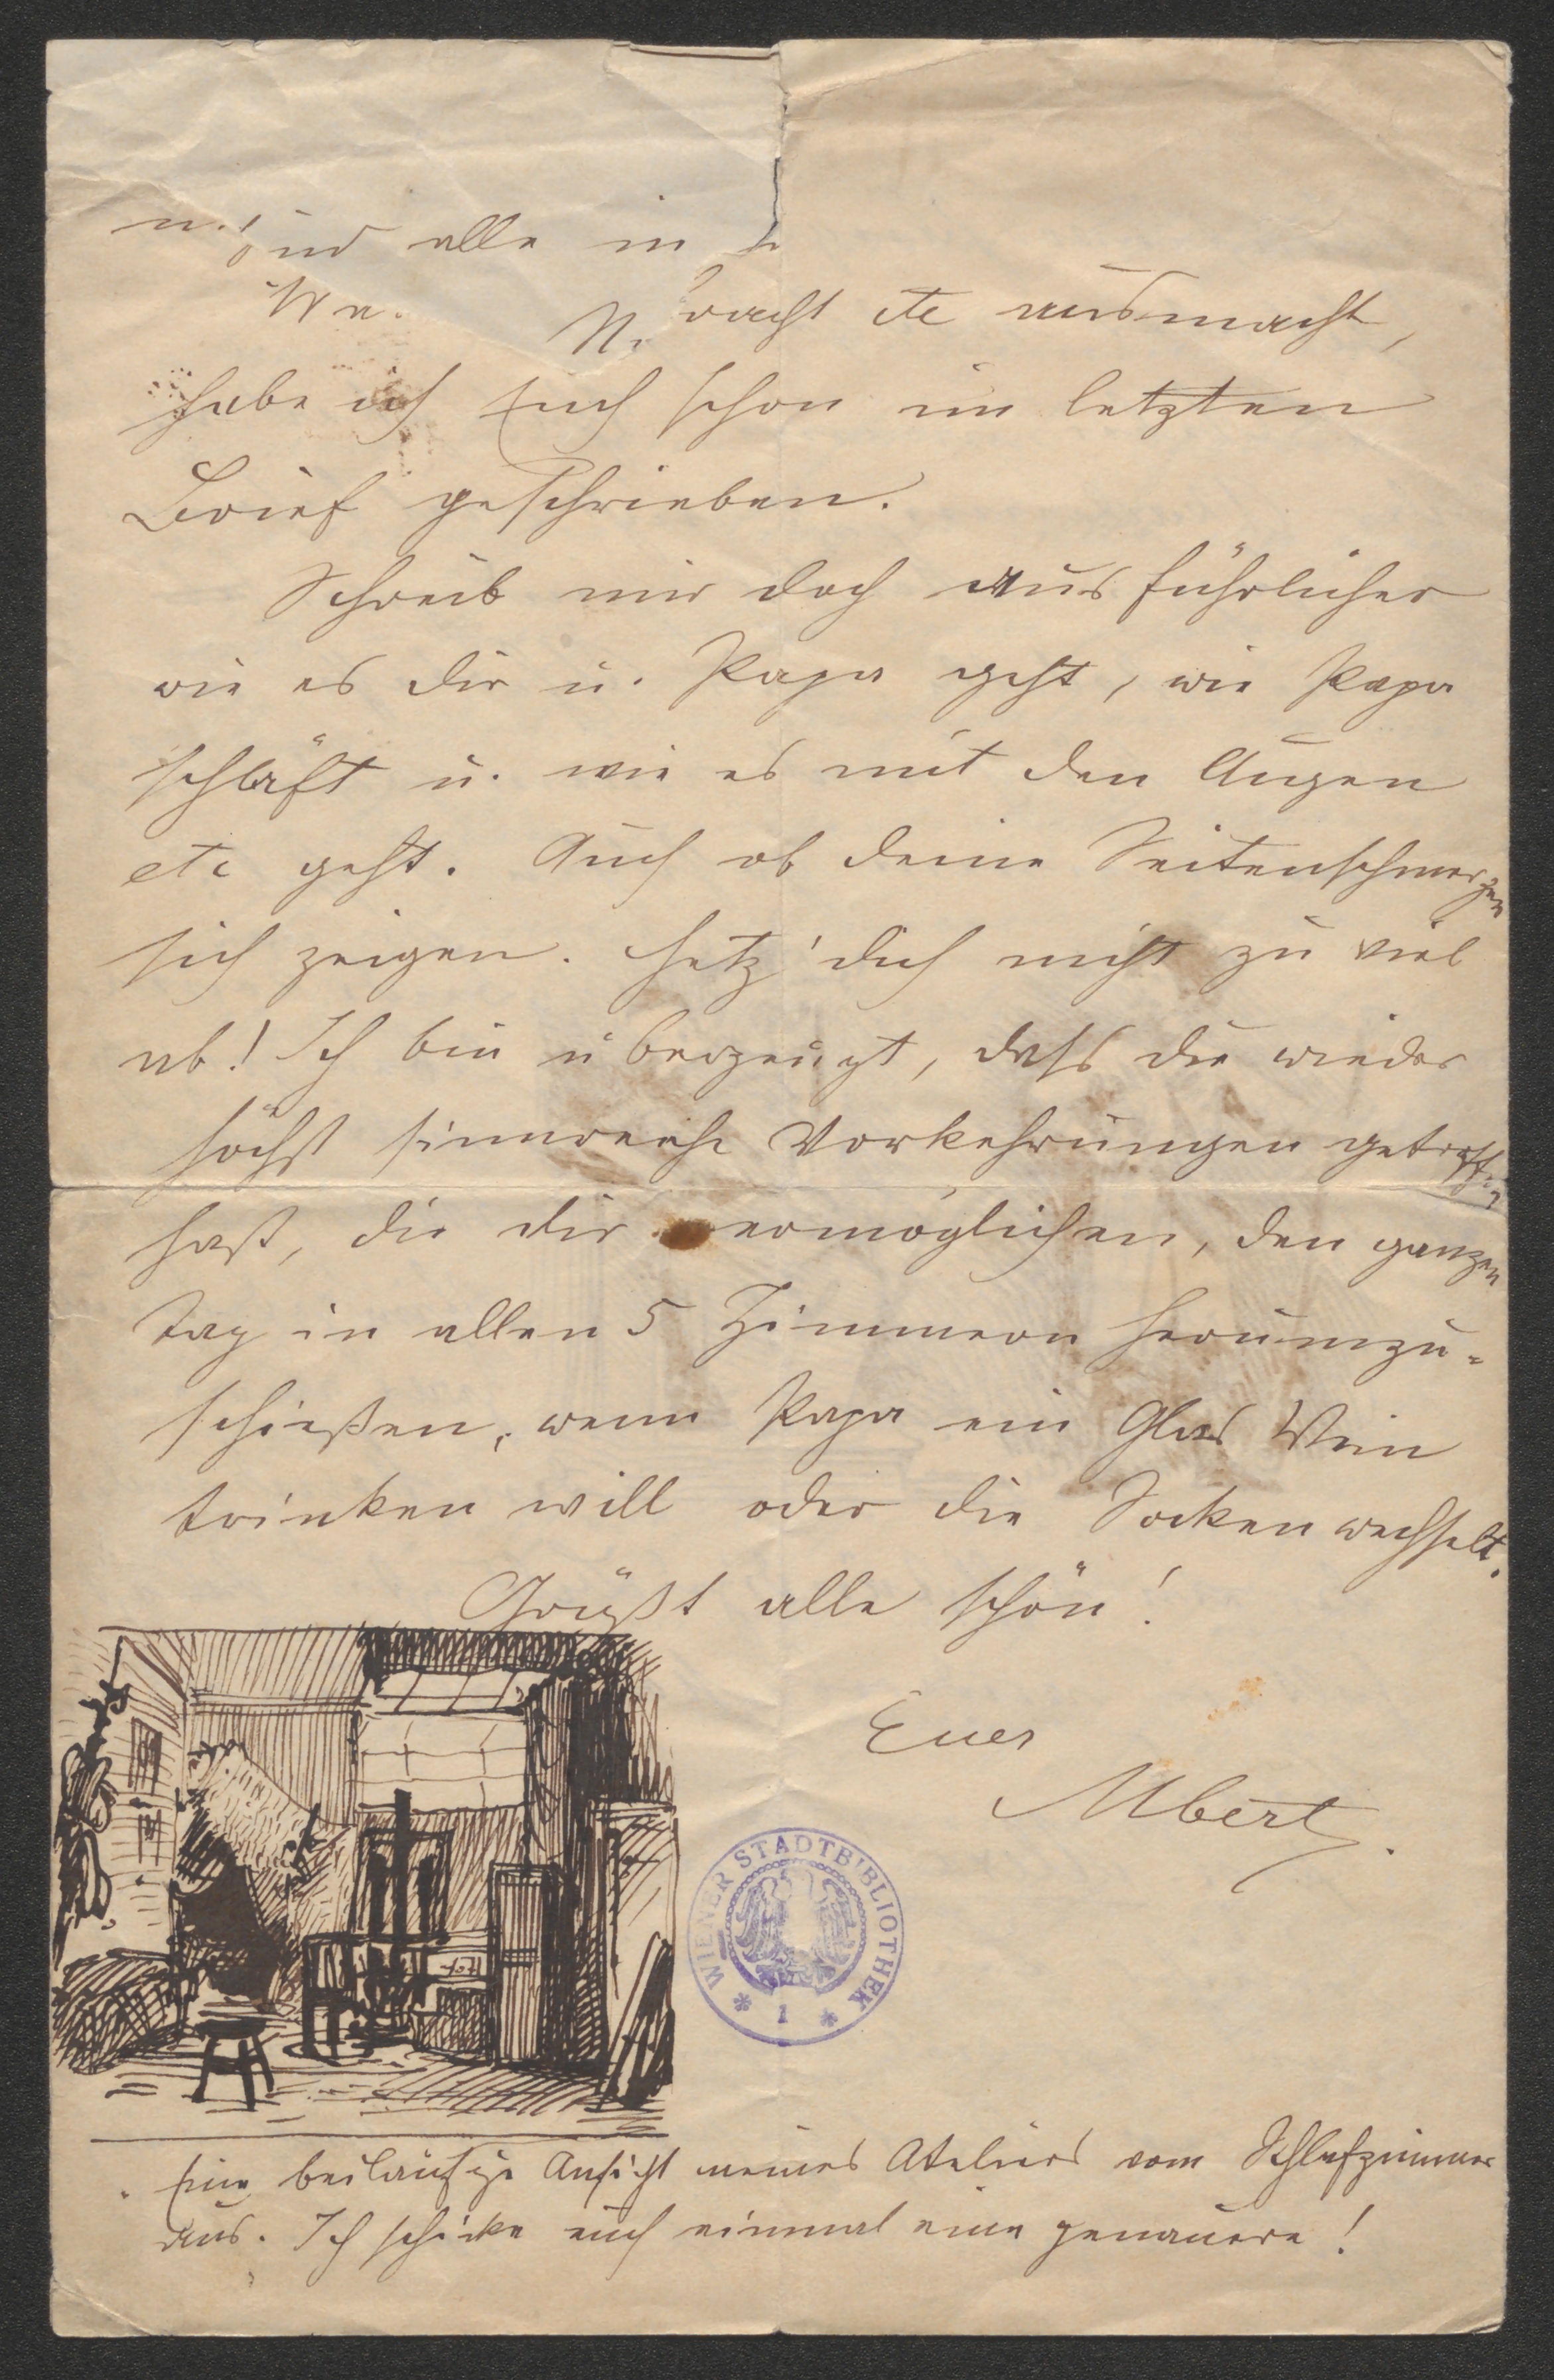 sind alle in
Wa. N. racht etc ausmacht,
habe ich Euch schon im letzten
Brief geschrieben.
Schreib mir doch ausführlicher
wie es dir u. Papa geht, wie Papa
schläft u. wie es mit den Augen
etc geht. Auch ob deine Seitenschmerzen
sich zeigen. Hetz' dich nicht zu viel
ab! Ich bin überzeugt, dass du wieder
höchst sinnreiche Vorkehrungen getroffen
hast, die dir ermöglichen, den ganzen
Tag in allen 5 Zimmern herumzu=
schießen, wenn Papa ein Glas Wein
trinken will oder die Socken wechselt.
Grüßt alle schön!
Euer
Albert.
WIENER STADTBIBLIOTHEK
* 1 *
Eine beiläufige Ansicht meines Ateliers vom Schlafzimmer
aus. Ich schicke euch einmal eine genauere!